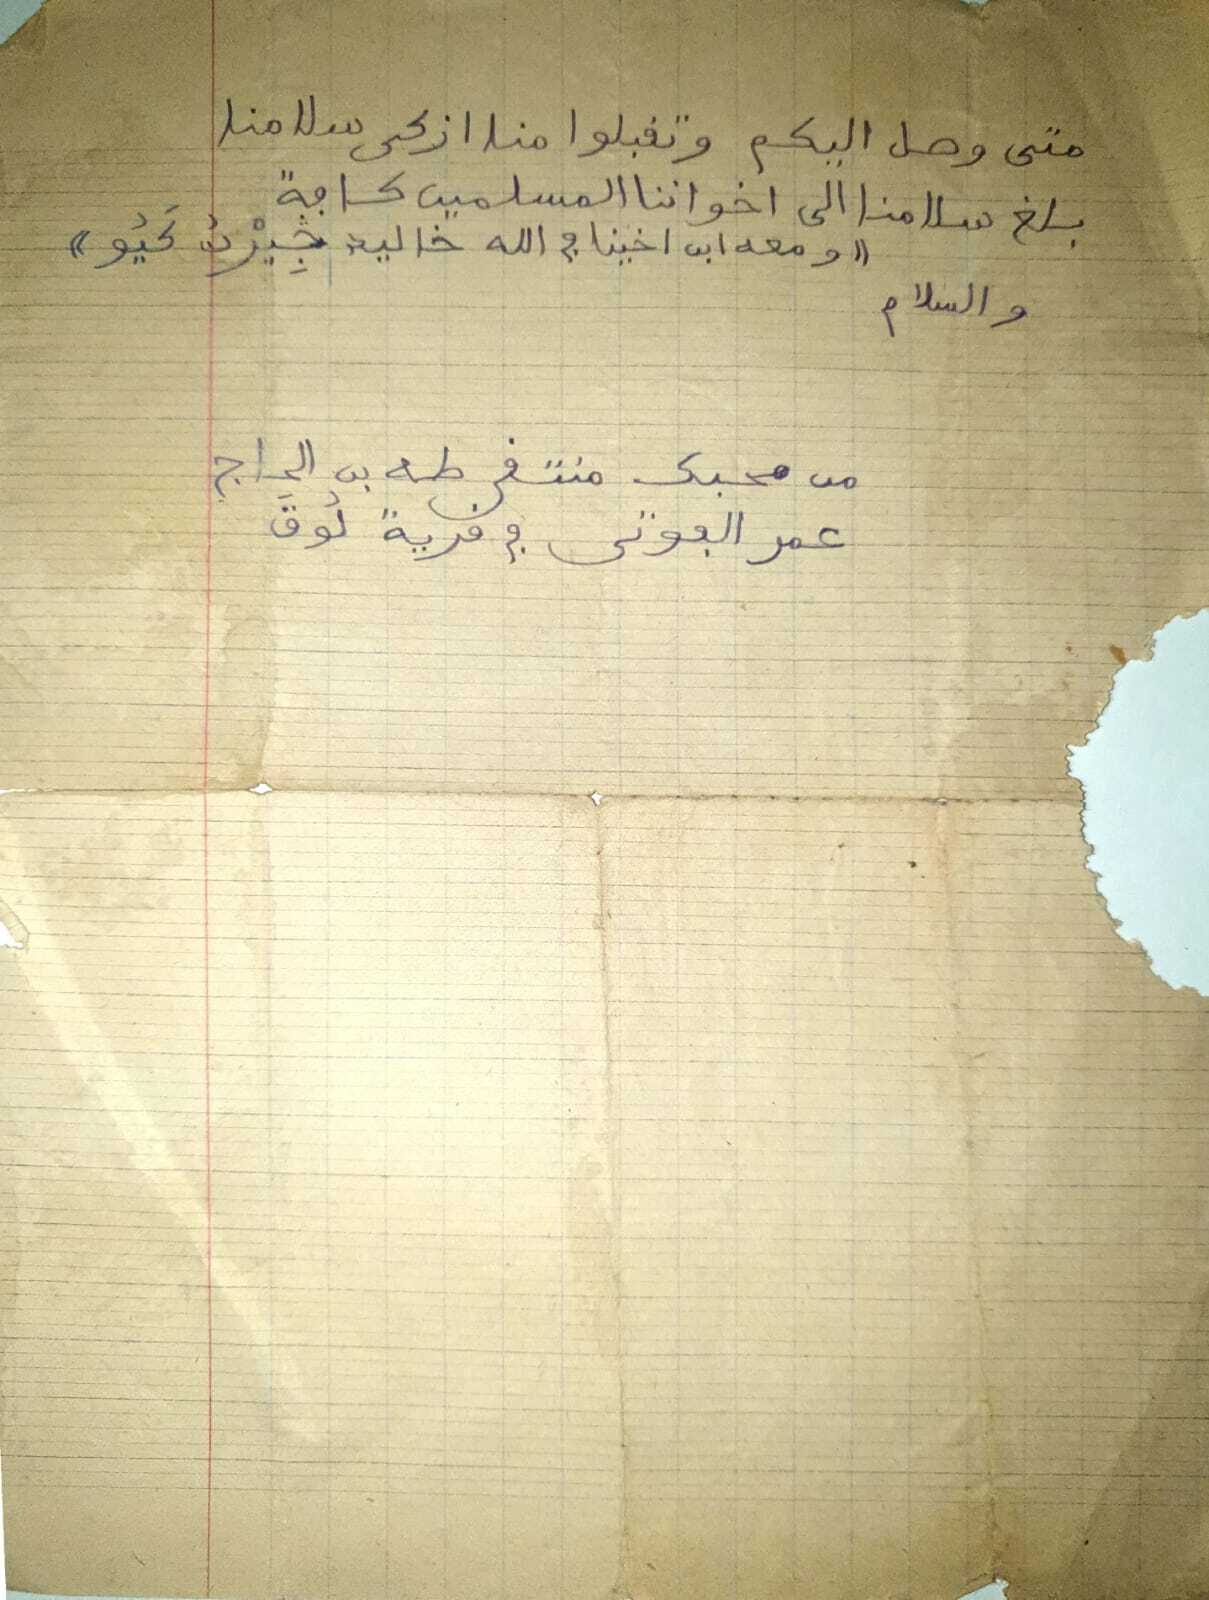 متى وصل اليكم وتقبلوا منا ازكى سلامنا
بلغ سلامنا الى اخواننا المسلمين كافة
«ومعه ابن اخينا في الله خاليد جِيْرْنُ كَيْو»
والسلام
من محبك منتقى طه بن الحاج
عمر الفوتي في قرية لُوقَ